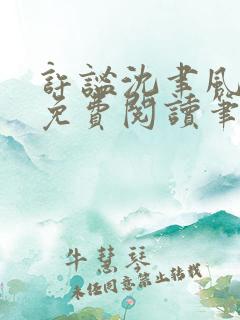 許謐沈聿風
免費閱讀筆
牛慧琴
未经同意禁止转载